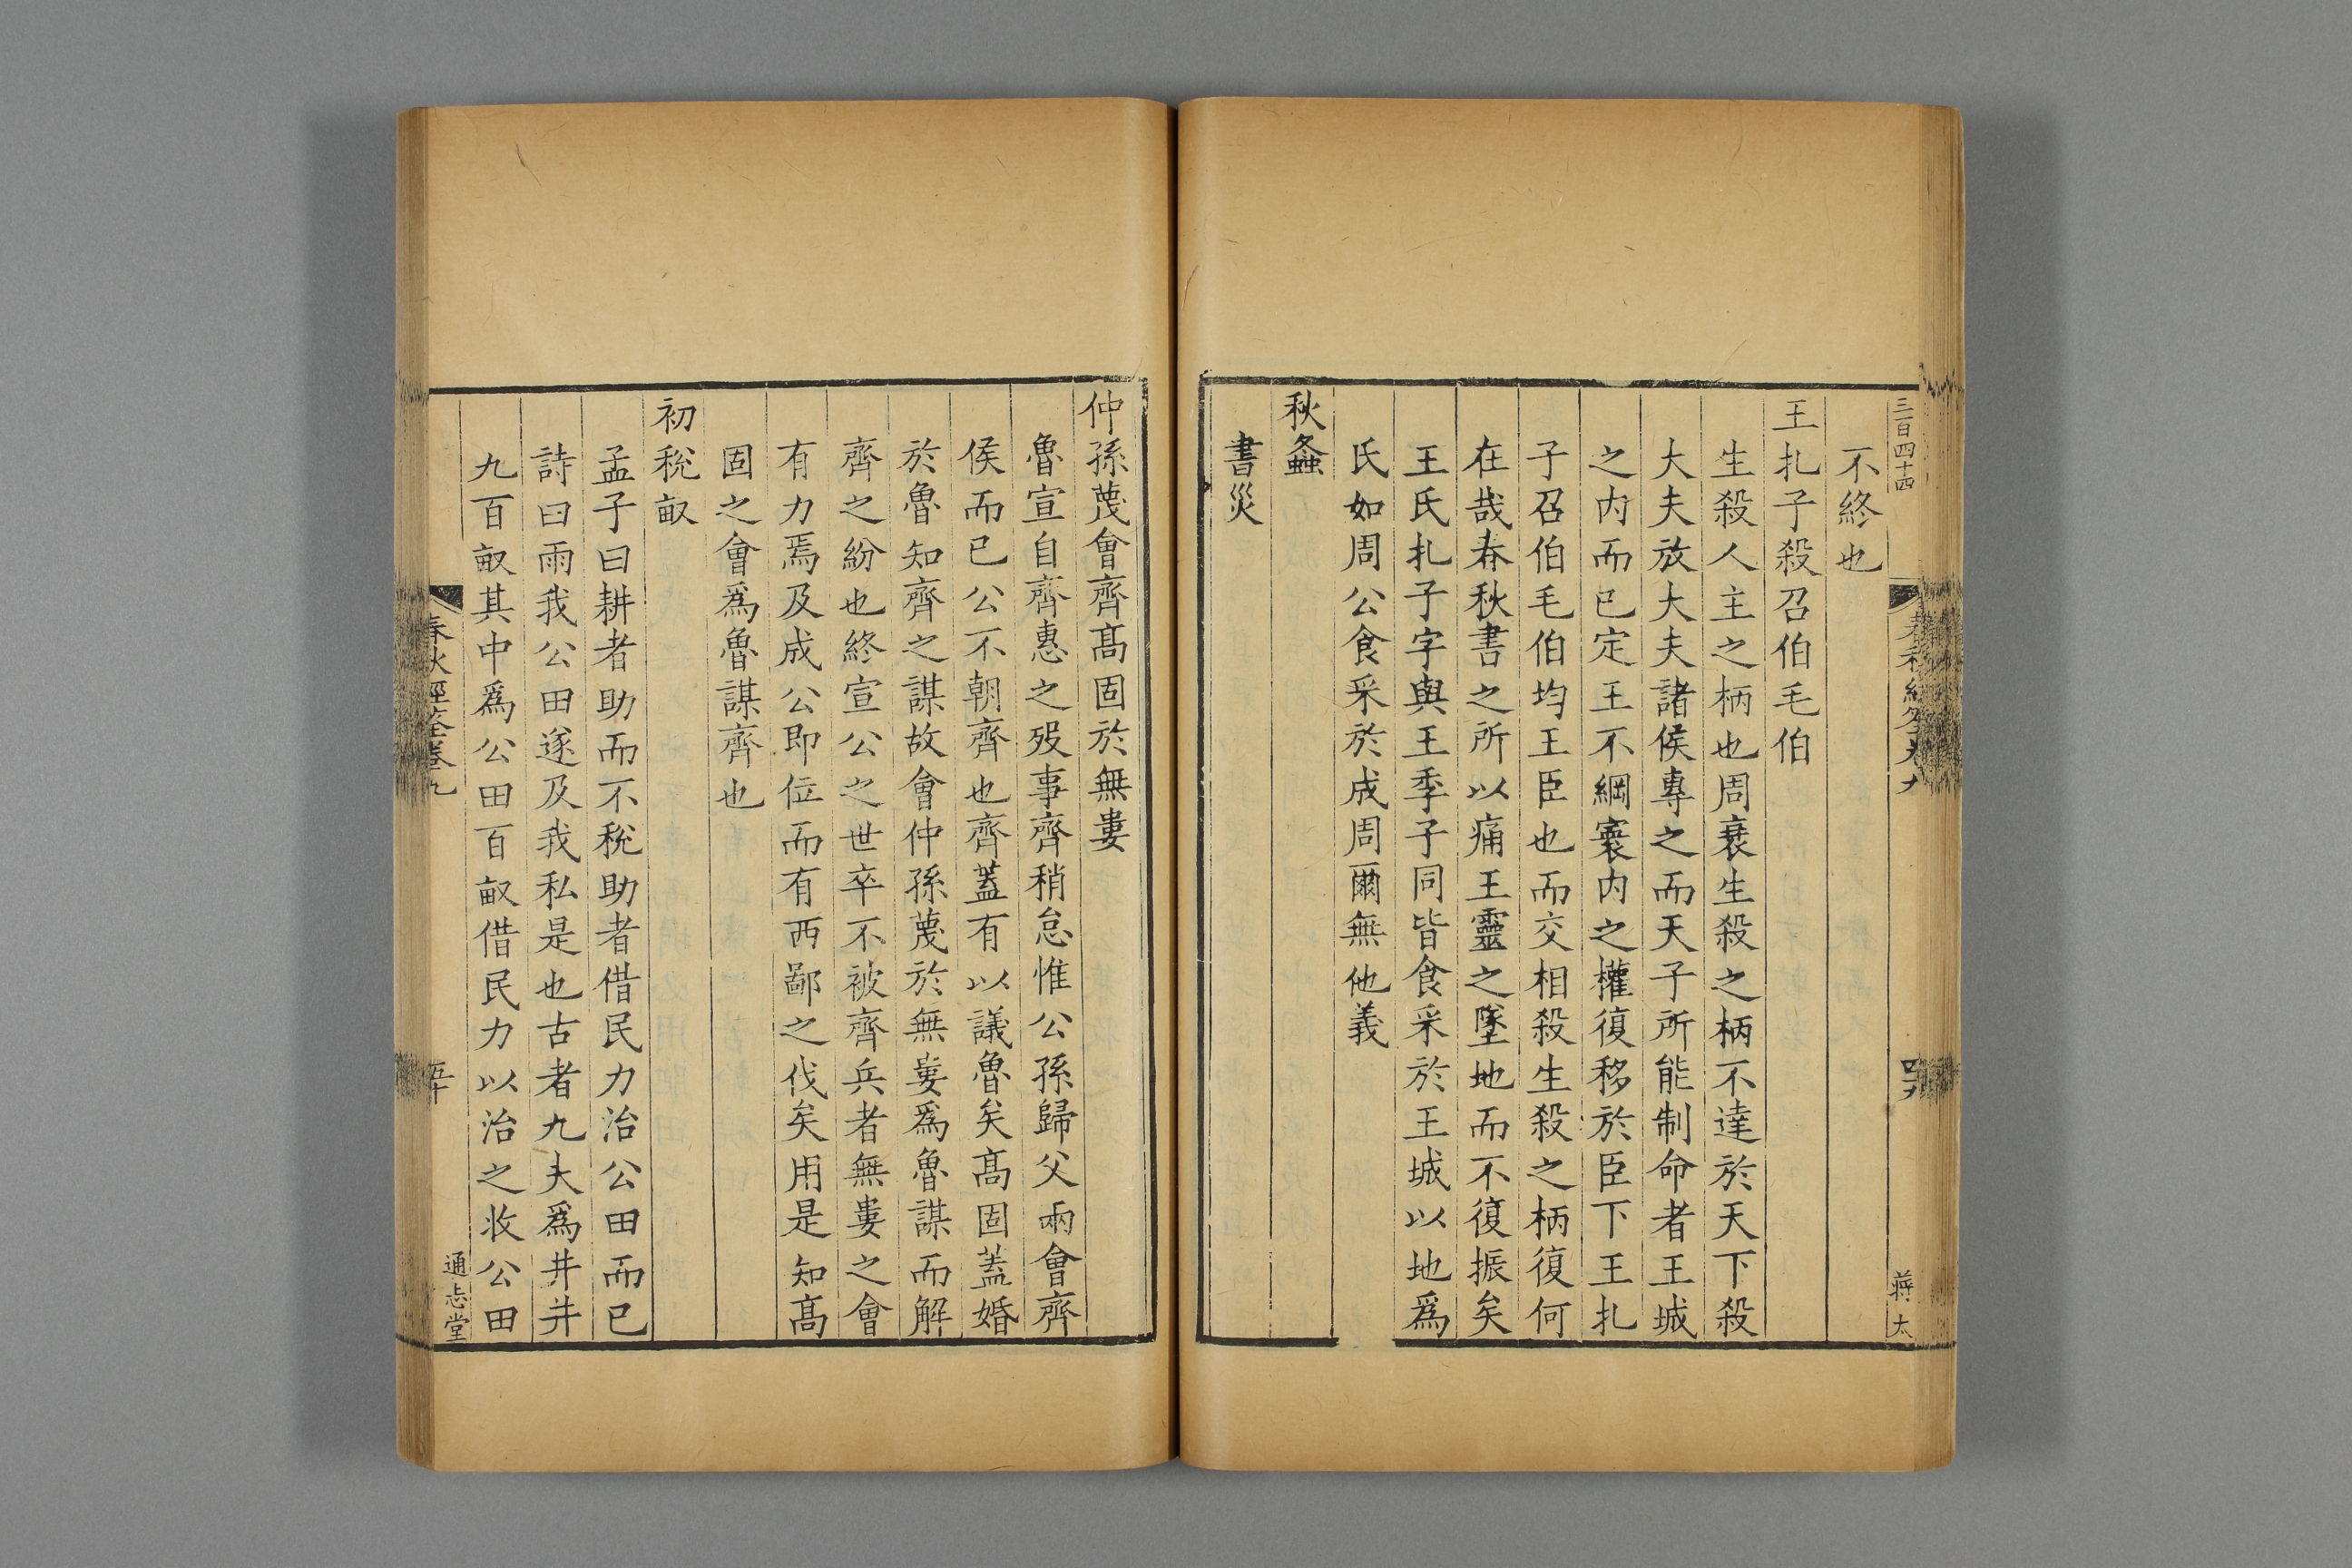 三百四十四
春秋經筌卷九
四十九
蒋太
不終也
王札子殺召伯毛伯
生殺人主之柄也周衰生殺之柄不達於天下殺
大夫放大夫諸侯專之而天子所能制命者王城
之内而已定王不綱寰内之權復移於臣下王札
子召伯毛伯均王臣也而交相殺生殺之柄復何
在哉春秋書之所以痛王靈之墜地而不復振矣
王氏札子字與王季子同皆食采於王城以地爲
氏如周公食采於成周爾無他義
秋螽
書災
仲孫蔑會齊髙固於無婁
魯宣自齊惠之殁事齊稍怠惟公孫歸父兩會齊
侯而已公不朝齊也齊蓋有以議魯矣髙固蓋婚
於魯知齊之謀故會仲孫蔑於無婁爲魯謀而解
齊之紛也終宣公之世卒不被齊兵者無婁之會
有力焉及成公即位而有西鄙之伐矣用是知髙
固之會爲魯謀齊也
初稅畝
孟子曰耕者助而不稅助者借民力治公田而已
詩曰雨我公田遂及我私是也古者九夫爲井井
九百畝其中爲公田百畝借民力以治之收公田
春秋經筌卷九
五十
通志堂